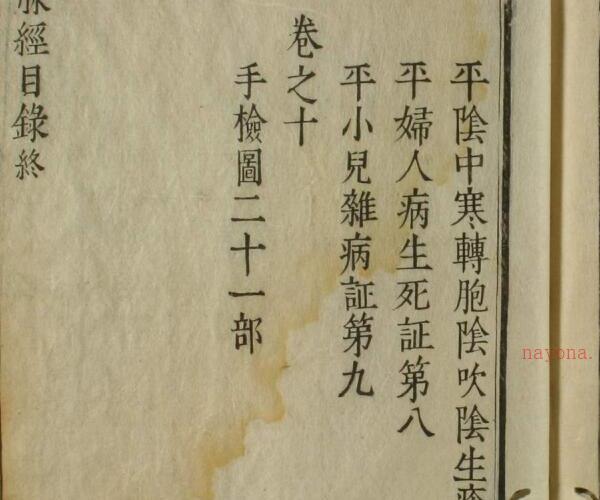 平陰中寒轉胞陰吹陰生
平婦人病生死証第八
平小兒雜病証第九
卷之十
手檢圖二十一部
脉經目錄終
nayona.